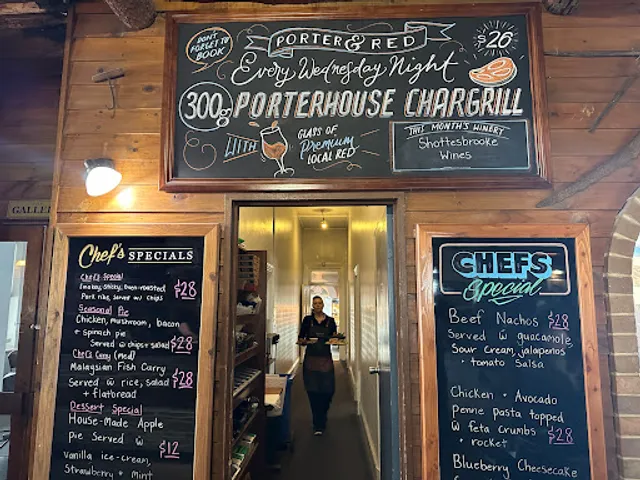 DON'T
FORGET TO
BOOK
PORTER & RED
$26
Every Wednesday Night
300g PORTERHOUSE CHARGRILL
WITH
GLASS OF
Premium
LOCAL RED
THIS MONTH'S WINERY
Shottesbrooke
Wines
GALLE
Chef's SPECIALS
Chef's Special
Smokey, sticky, oven-roasted
Pork ribs, served w/ chips $28
Seasonal Pie
Chicken, mushroom, bacon
+ spinach pie
Served w chips + salad $28
Chef's Curry (med)
Malaysian Fish Curry
Served w rice, salad $28
+ flatbread
Dessert Special
House-Made Apple
Pie Served w $12
vanilla ice-cream,
Strawberry + mint
CHEFS
Special
Beef Nachos $28
Served w guacamole
Sour cream, jalapenos
+ tomato salsa
Chicken + Avocado
Penne pasta topped
w feta crumbs $28
+ rocket
Blueberry Cheesecake